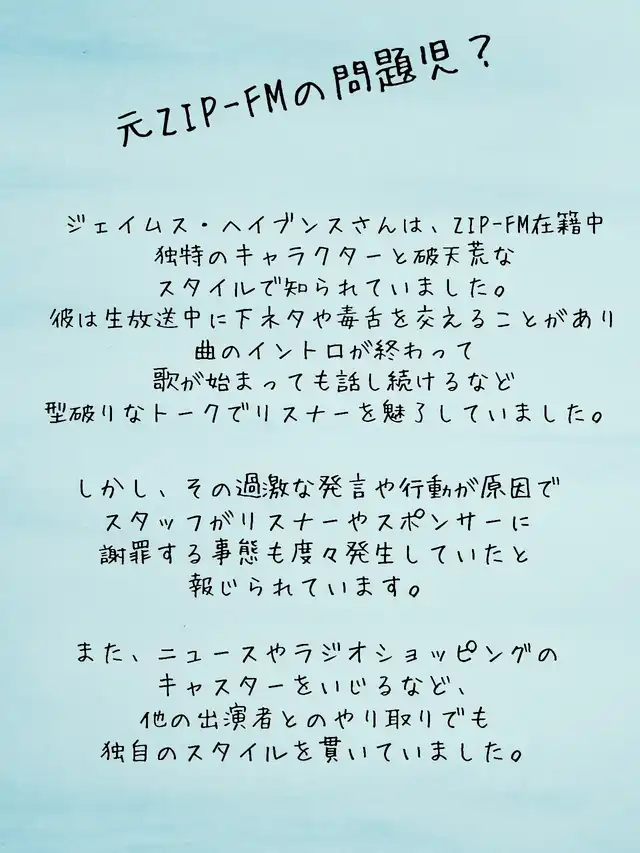 元ZIP-FMの問題児？
ジェイムス・ヘイブンスさんは、ZIP-FM在籍中
独特のキャラクターと破天荒な
スタイルで知られていました。
彼は生放送中に下ネタや毒舌を交えることがあり
曲のイントロが終わって
歌が始まっても話し続けるなど
型破りなトークでリスナーを魅了していました。
しかし、その過激な発言や行動が原因で
スタッフがリスナーやスポンサーに
謝罪する事態も度々発生していたと
報じられています。
また、ニュースやラジオショッピングの
キャスターをいじるなど、
他の出演者とのやり取りでも
独自のスタイルを貫いていました。